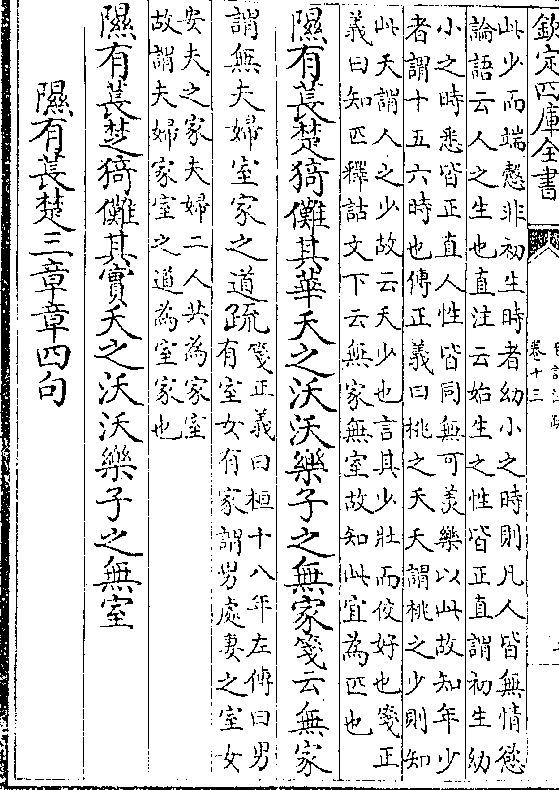 欽定四庫全書
卷十三
此少而端慤非初生時者幼小之時則凡人皆無情慾
論語云人之生也直注云始生之性皆正直謂初生幼
小之時悉皆正直人性皆同無可羙樂以此故知年少
者謂十五六時也傳正義曰桃之夭夭謂桃之少則知
此夭謂人之少故云夭少也言其少壯而佼好也箋正
義曰知匹釋詁文下云無家無室故知此宜為匹也
隰有萇楚猗儺其華夭之沃沃樂子之無家箋云無家
謂無夫婦室家之道疏
箋正義曰桓十八年左傳曰男
有室女有家謂男處妻之室女
安夫之家夫婦二人共為家室
故謂夫婦家室之道為室家也
隰有萇楚猗儺其實夭之沃沃樂子之無室
隰有萇楚三章章四句